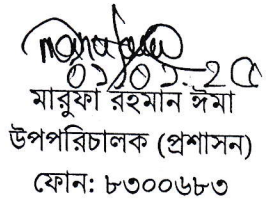 ০১/০১-২৫
মারুফা রহমান ঈমা
উপপরিচালক (প্রশাসন)
ফোন: ৮৩০০৬৮৩